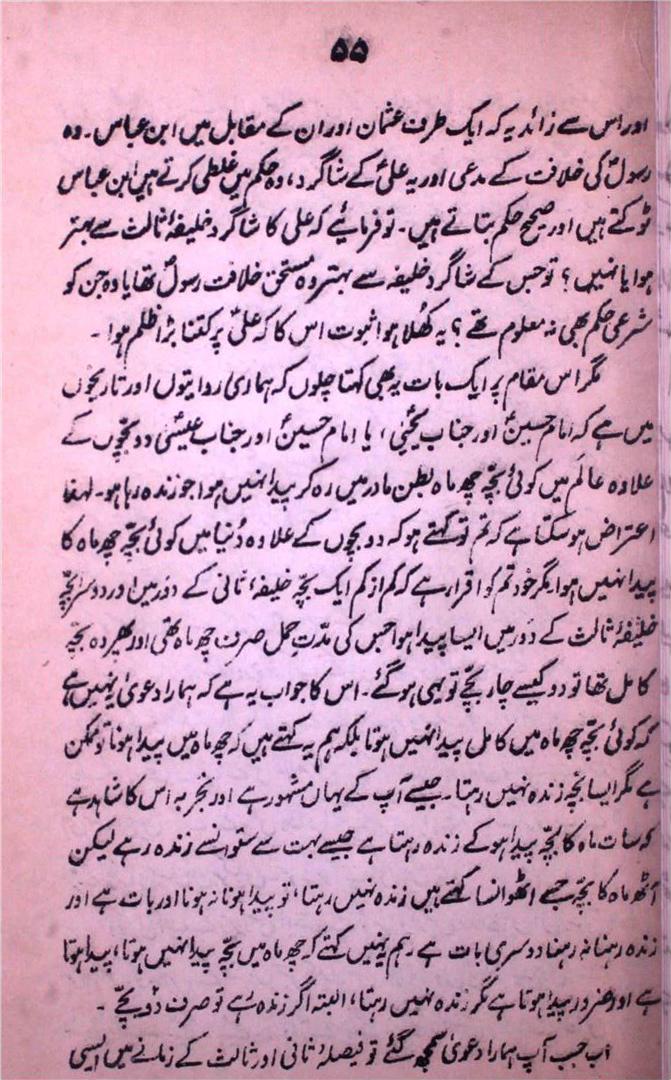 ۵۵
اور اس سے زائد یہ کہ ایک طرف عثمان اور ان کے مقابل میں ابن عباس۔ وہ
رسولؐ کی خلافت کے مدعی اور یہ علیؑ کے شاگرد، وہ حکم میں غلطی کرتے ہیں ابن عباس
ٹوکتے ہیں اور صحیح حکم بتاتے ہیں۔ تو فرمائیے کہ علی کا شاگرد خلیفۂ ثالث سے بہتر
ہوا یا نہیں؟ تو جس کے شاگرد خلیفہ سے بہتر وہ مستحق خلافت رسولؐ تھا یا وہ جن کو
شرعی حکم بھی نہ معلوم تھے؟ یہ کھُلا ہوا ثبوت اس کا کہ علیؑ پر کتنا بڑا ظلم ہوا۔
مگر اس مقام پر ایک بات یہ بھی کہتا چلوں کہ ہماری روایتوں اور تاریخوں
میں ہے کہ امام حسینؑ اور جناب یحییٰؑ، یا امام حسینؑ اور جناب عیسیٰؑ دو بچّوں کے
علاوہ عالَم میں کوئی بچّہ چھ ماہ بطن مادر میں رہ کر پیدا نہیں ہوا جو زندہ رہا ہو۔ لہٰذا
اعتراض ہو سکتا ہے کہ تم تو کہتے ہو کہ دو بچوں کے علاوہ دُنیا میں کوئی بچّہ چھ ماہ کا
پیدا نہیں ہوا مگر خود تم کو اقرار ہے کہ کم از کم ایک بچّہ خلیفۂ ثانی کے دَور میں اور دوسرا بچّہ
خلیفۂ ثالث کے دَور میں ایسا پیدا ہوا جس کی مدّتِ حمل صرف چھ ماہ تھی اور پھر وہ بچّہ
کامل تھا تو دو کیسے چار بچّے تو یہی ہو گئے۔ اس کا جواب یہ ہے کہ ہمارا دعویٰ یہ نہیں ہے
کہ کوئی بچّہ چھ ماہ میں کامل پیدا نہیں ہوتا بلکہ ہم یہ کہتے ہیں کہ چھ ماہ میں پیدا ہونا تو ممکن
ہے مگر ایسا بچّہ زندہ نہیں رہتا۔ جیسے آپ کے یہاں مشہور ہے اور تجربہ اس کا شاہد ہے
کہ سات ماہ کا بچّہ پیدا ہو کے زندہ رہتا ہے جیسے بہت سے ستوانسے زندہ رہے لیکن
آٹھ ماہ کا بچّہ جسے اٹھوانسا کہتے ہیں زندہ نہیں رہتا، تو پیدا ہونا نہ ہونا اور بات ہے اور
زندہ رہنا نہ رہنا دوسری بات ہے۔ ہم یہ نہیں کہتے کہ چھ ماہ میں بچّہ پیدا نہیں ہوتا، پیدا ہوتا
ہے اور ضرور پیدا ہوتا ہے مگر زندہ نہیں رہتا، البتہ اگر زندہ رہے تو صرف دو بچّے۔
اب جب آپ ہمارا دعویٰ سمجھ گئے تو فیصلۂ ثانی اور ثالث کے زمانے میں ایسی